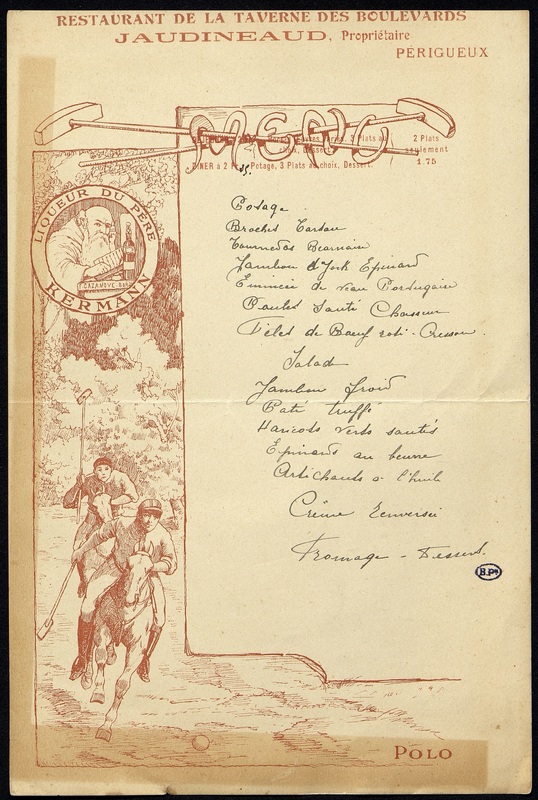 RESTAURANT DE LA TAVERNE DES BOULEVARDS
JAUDINEAUD, Propriétaire
PÉRIGUEUX
MENU
3 Plats au choix, Dessert.
2 Plats seulement
1.75
DINER à 2 Potage, 3 Plats au choix, Dessert.
LIQUEUR DU PÈRE
KERMANN
CAZANOVE
Potage
Brochet Tartare
Tournedos Bearnaise
Jambon d'York Epinard
Emincé de veau Portugaise
Poulet Sauté Chasseur
Filet de Bœuf roti - Cresson
Salade
Jambon froid
Paté truffé
Haricots verts sautés
Epinards au beurre
Artichauts a l'huile
Crème Renversée
Fromage - Dessert
POLO